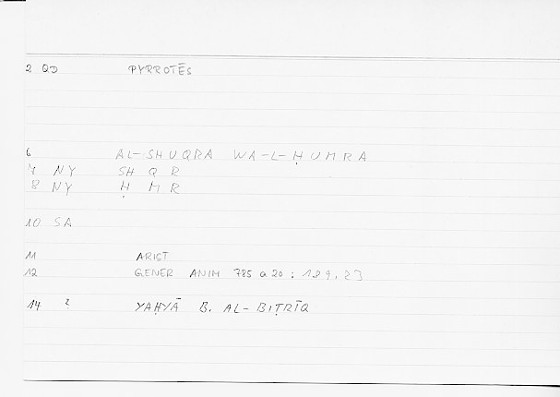 2 QD PYRROTĒS
6 AL-SHUQRA WA-L-ḤUMRA
7 NY SH Q R
8 NY Ḥ M R
10 SA
11 ARIST
12 GENER ANIM 785 a 20 : 189,23
14 2 YAḤYĀ B. AL-BIṬRĪQ